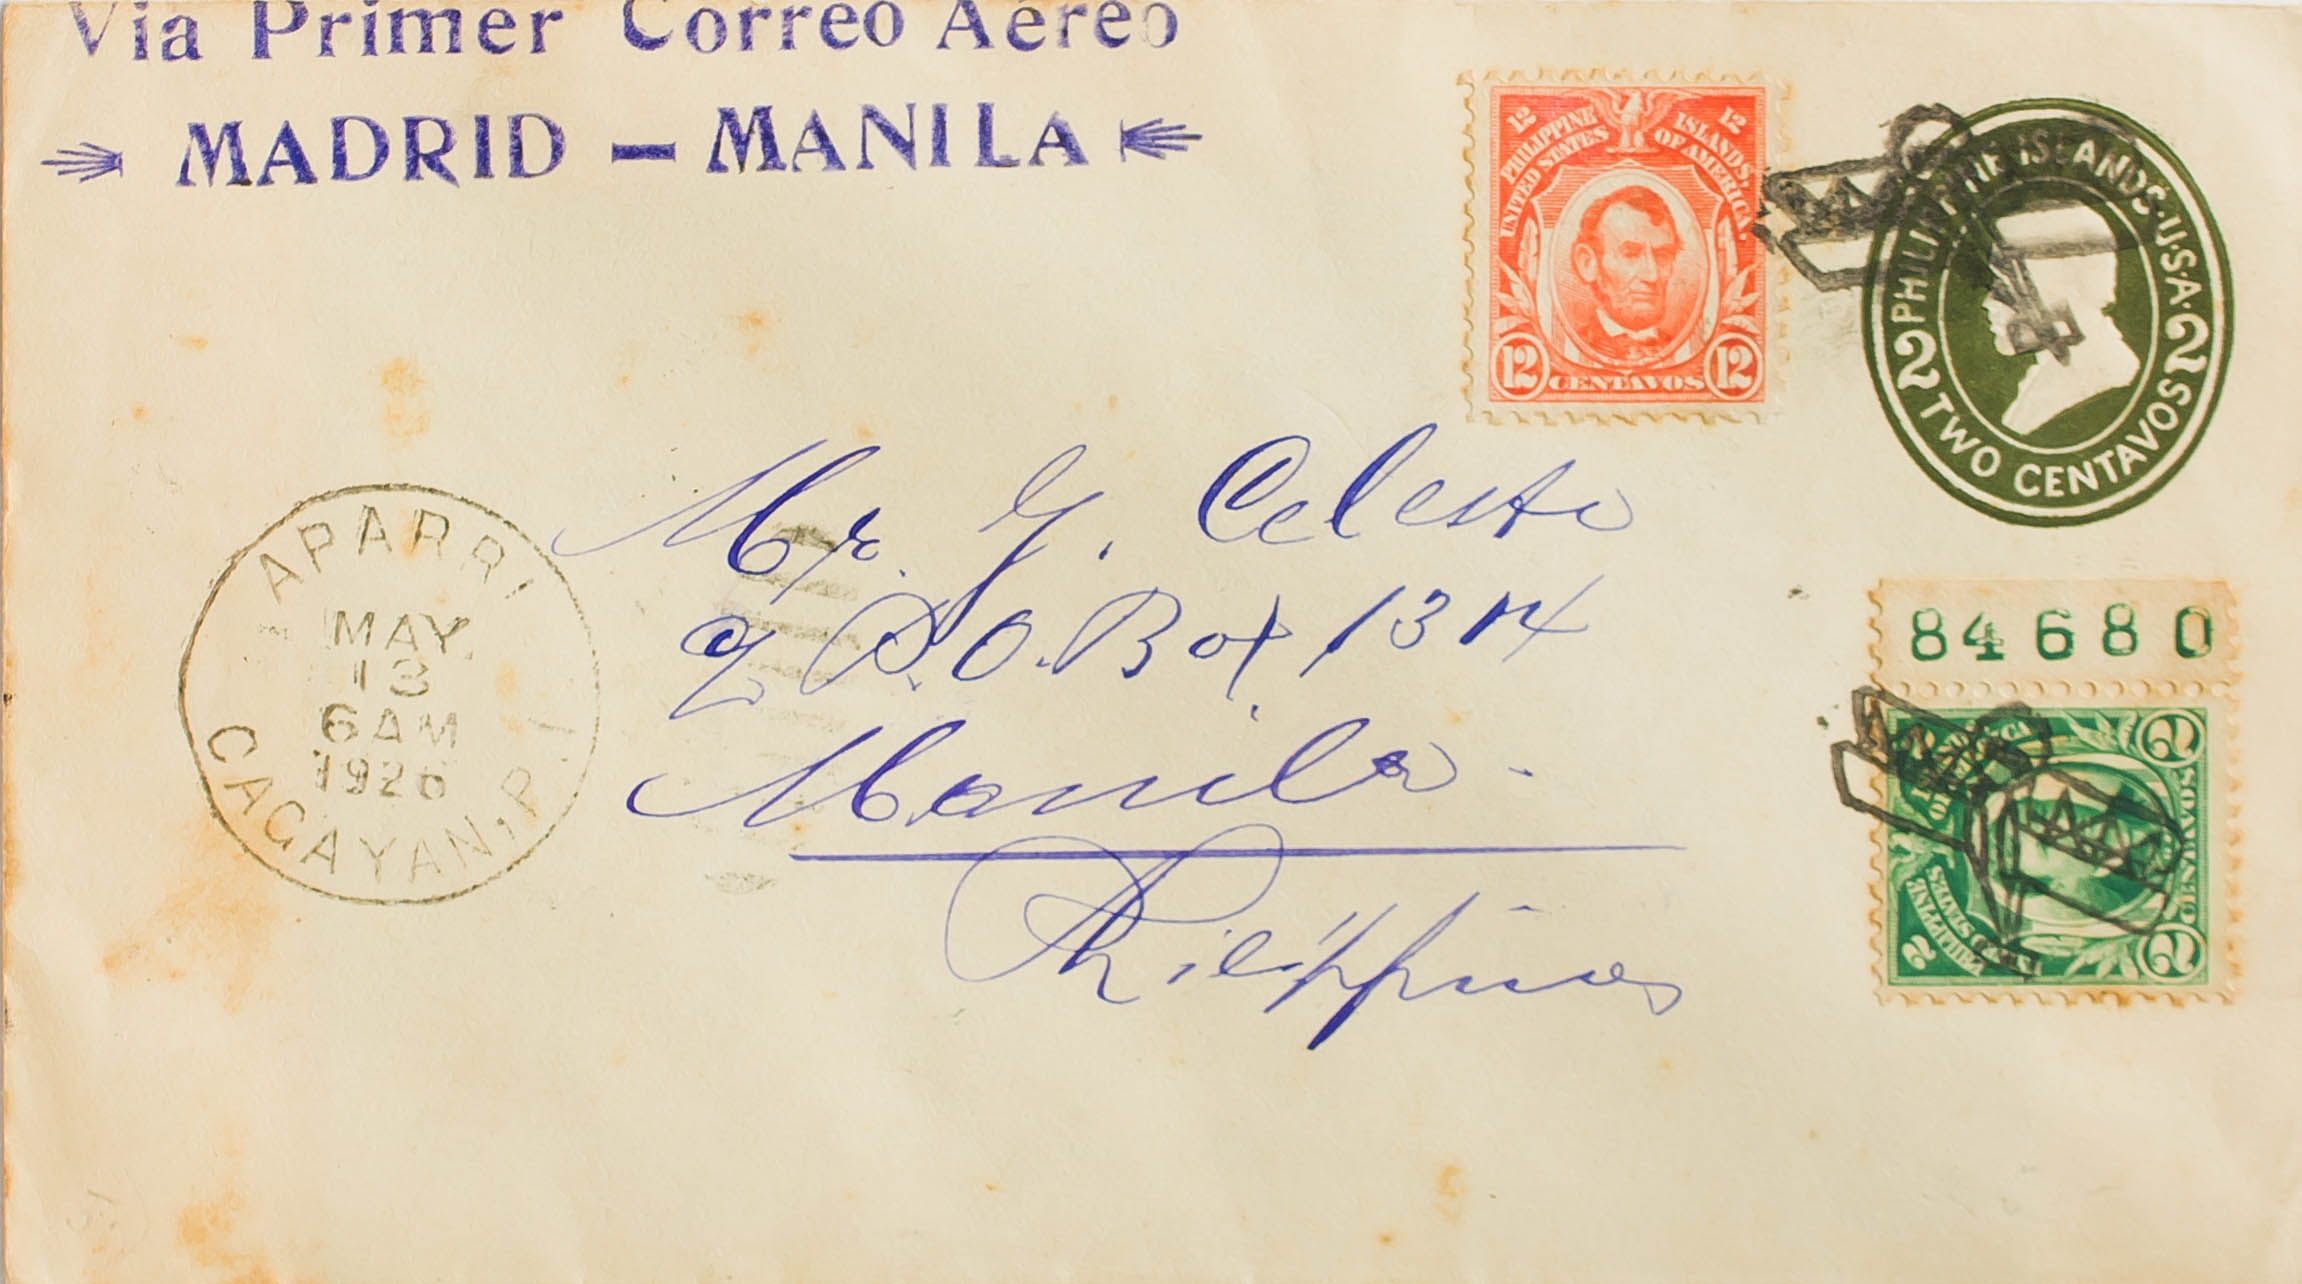 Via Primer Correo Aéreo
MADRID — MANILA
12 12
PHILIPPINE ISLANDS,
UNITED STATES OF AMERICA.
12 CENTAVOS 12
PHILIPPINE ISLANDS·U·S·A·
2 2
TWO CENTAVOS
APARRI
MAY.
13
6 AM
1926
CAGAYAN, P.I.
Mr. G. Celesto
℅ P.O. Box 1314
Manila.
Philippines
84680
2 CENTAVOS 2
PHILIPPINE
UNITED STATES
2